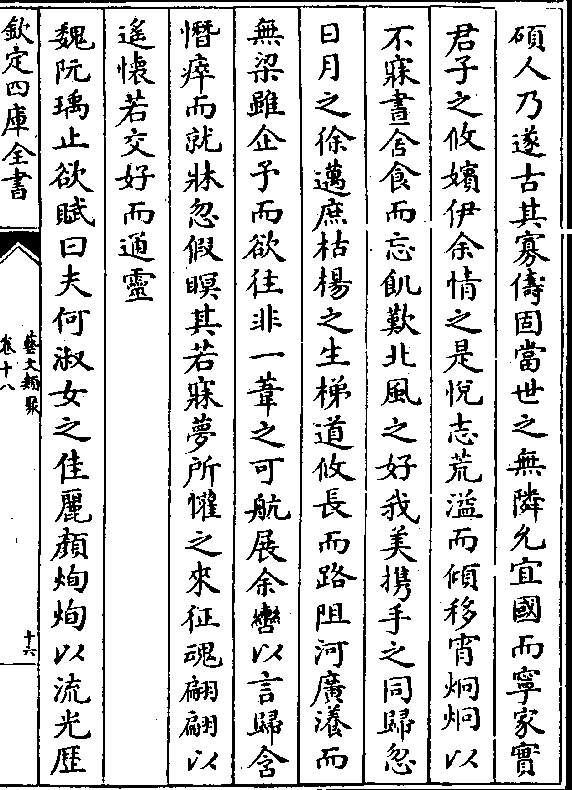 碩人乃遂古其寡儔固當世之無隣允宜國而寧家實
君子之攸嬪伊余情之是悅志荒溢而傾移宵炯炯以
不寐晝舍食而忘飢歎北風之好我美携手之同歸忽
日月之徐邁庶枯楊之生梯道攸長而路阻河廣瀁而
無梁雖企予而欲往非一葦之可航展余轡以言歸含
憯瘁而就牀忽假暝其若寐夢所懽之來征魂翩翩以
遙懷若交好而通靈
魏阮瑀止欲賦曰夫何淑女之佳麗顏炯炯以流光歴
欽定四庫全書
藝文類聚
卷十八
十六